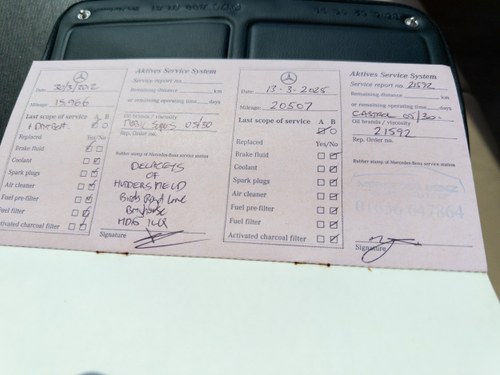 Date 30/3/2012
Mileage 15,966
Last scope of service A B
Replaced Yes/No
Brake fluid
Coolant
Spark plugs
Air cleaner
Fuel pre-filter
Fuel filter
Activated charcoal filter
Aktives Service System
Service report no.
Remaining distance km
or remaining operating time days
Oil brands / viscosity
05/30
Rep. Order no.
Rubber stamp of Mercedes-Benz service station
DELACEYS
OF
HUDDERSFIELD
Birds Royd Lane
Brighouse
HD6
Signature
Date 13-3-2025
Mileage 20507
Last scope of service A B
Replaced Yes/No
Brake fluid
Coolant
Spark plugs
Air cleaner
Fuel pre-filter
Fuel filter
Activated charcoal filter
Aktives Service System
Service report no. 21592
Remaining distance km
or remaining operating time days
CASTROL 05/30.
Oil brands / viscosity
21592
Rep. Order no.
Rubber stamp of Mercedes-Benz service station
647864
Signature